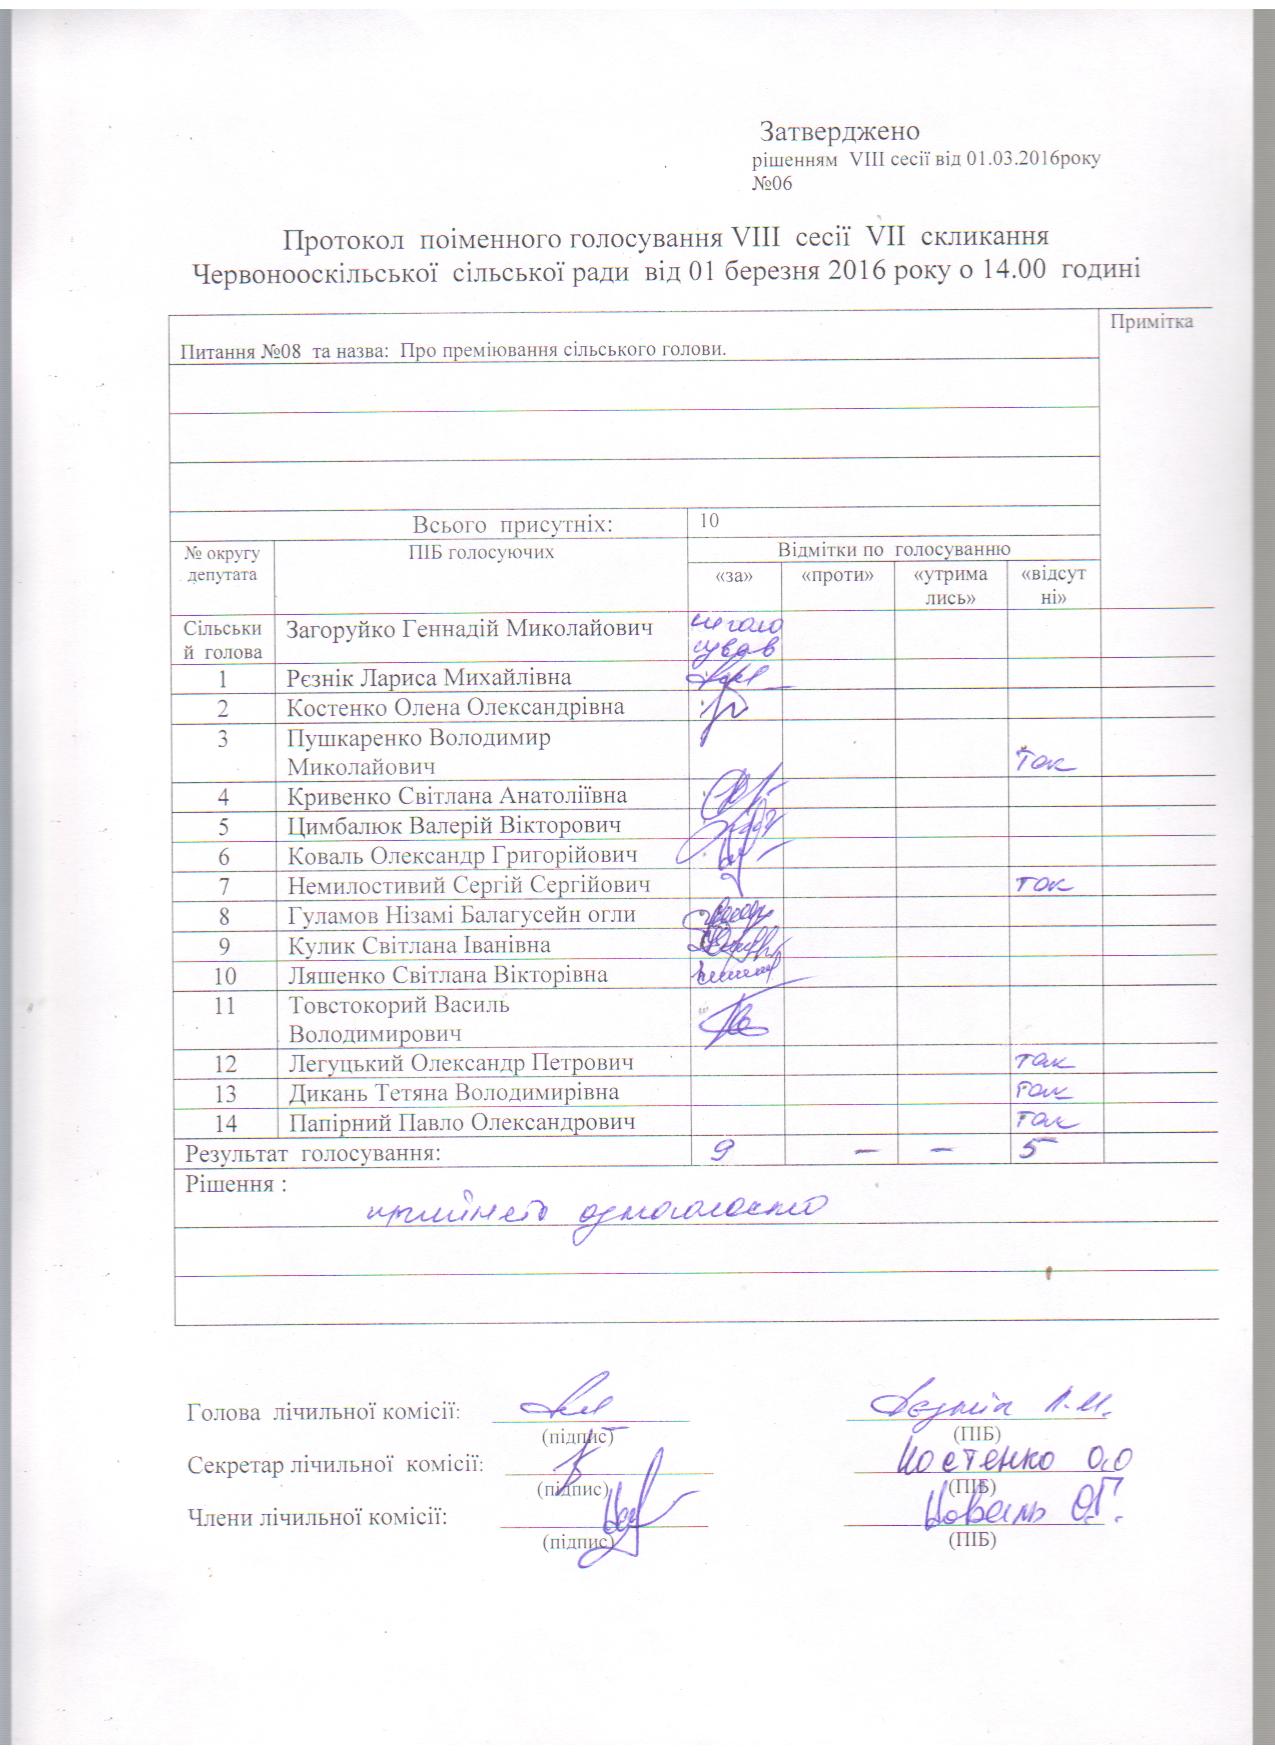 Затверджено
рішенням VIII сесії від 01.03.2016року
№06
Протокол поіменного голосування VIII сесії VII скликання
Червонооскільської сільської ради від 01 березня 2016 року о 14.00 годині
Примітка
Питання №08 та назва: Про преміювання сільського голови.
Всього присутніх: 10
№ округу ПІБ голосуючих Відмітки по голосуванню
депутата «за» «проти» «утрима «відсут
лись» ні»
Сільськи Загоруйко Геннадій Миколайович не голо
й голова сував
1 Рєзнік Лариса Михайлівна
2 Костенко Олена Олександрівна
3 Пушкаренко Володимир
Миколайович так
4 Кривенко Світлана Анатоліївна
5 Цимбалюк Валерій Вікторович
6 Коваль Олександр Григорійович
7 Немилостивий Сергій Сергійович так
8 Гуламов Нізамі Балагусейн огли
9 Кулик Світлана Іванівна
10 Ляшенко Світлана Вікторівна
11 Товстокорий Василь
Володимирович
12 Легуцький Олександр Петрович так
13 Дикань Тетяна Володимирівна так
14 Папірний Павло Олександрович так
Результат голосування: 9 – – 5
Рішення :
прийнято одноголосно
Голова лічильної комісії: Рєзнік Л.М.
(підпис) (ПІБ)
Секретар лічильної комісії: Костенко О.О
(підпис) (ПІБ)
Члени лічильної комісії: Коваль О.Г.
(підпис) (ПІБ)